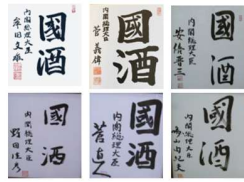 國酒
内閣総理大臣
岸田文雄
國酒
内閣総理大臣
菅義偉
國酒
内閣総理大臣
安倍晋三
國酒
内閣総理大臣
野田佳彦
國酒
内閣総理大臣
菅直人
國酒
内閣総理大臣
鳩山由紀夫